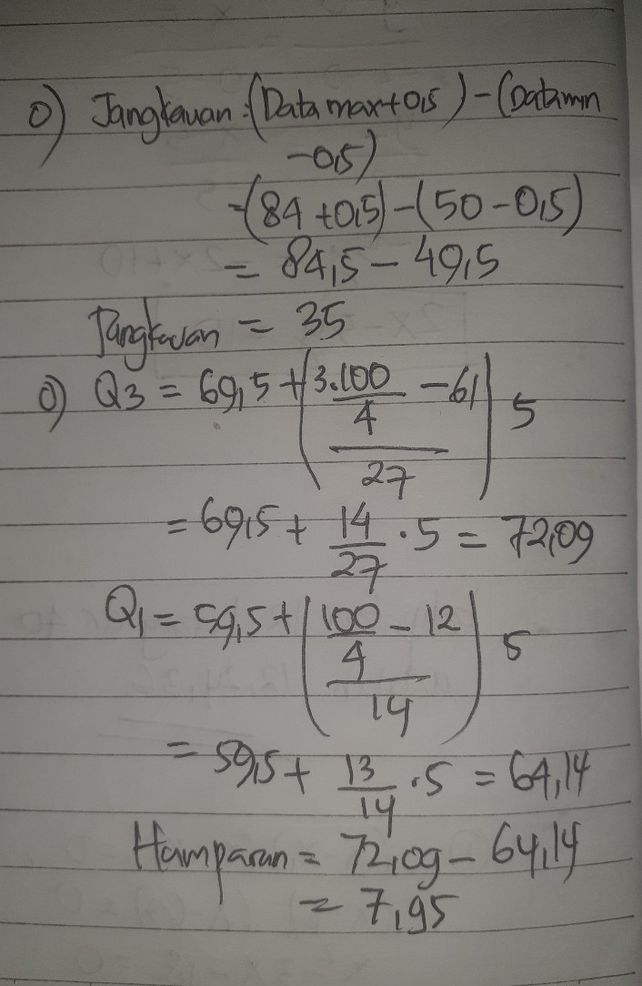 o) Jangkauan = (Data max + 0,5) - (Data min
- 0,5)
= (84 + 0,5) - (50 - 0,5)
= 84,5 - 49,5
Jangkauan = 35
o) Q3 = 69,5 + (3.100/4 - 61 / 27) 5
= 69,5 + 14/27 . 5 = 72,09
Q1 = 59,5 + (100/4 - 12 / 14) 5
= 59,5 + 13/14 . 5 = 64,14
Hamparan = 72,09 - 64,14
= 7,95